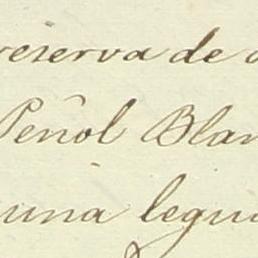 reserva de
Peñol Blan
una legu